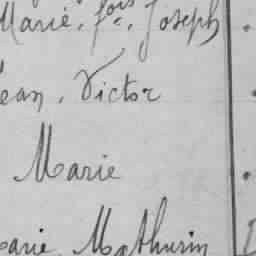 Marie, fois, Joseph
Jean, Victor
Marie
Marie Mathurin